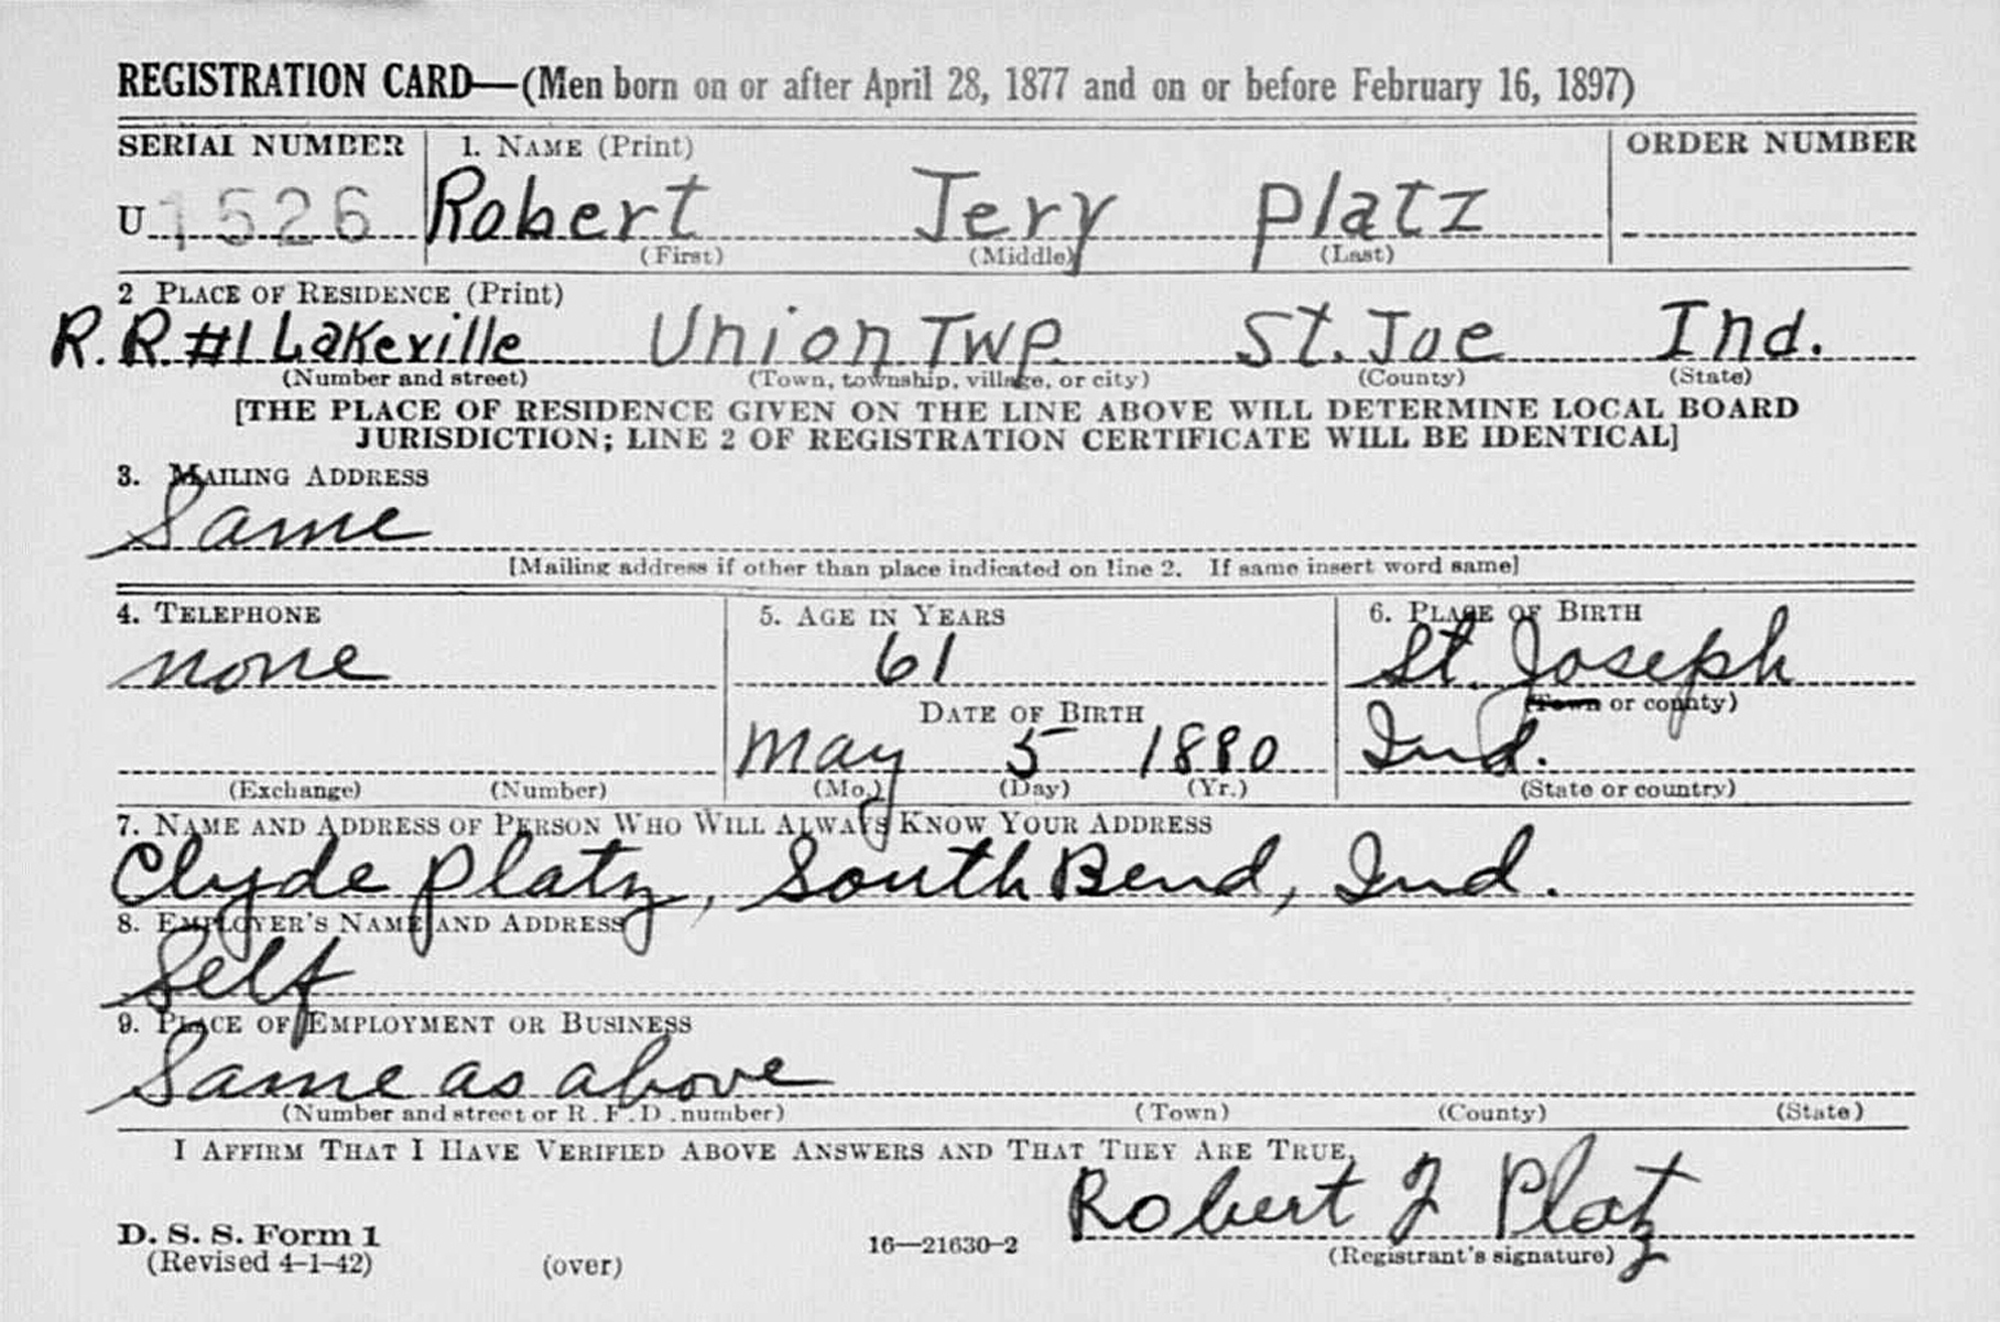 REGISTRATION CARD—(Men born on or after April 28, 1877 and on or before February 16, 1897)
SERIAL NUMBER 1. NAME (Print) ORDER NUMBER
U 1526 Robert Jery Platz
(First) (Middle) (Last)
2 PLACE OF RESIDENCE (Print)
R. R. #1 Lakeville Union Twp. St. Joe Ind.
(Number and street) (Town, township, village, or city) (County) (State)
[THE PLACE OF RESIDENCE GIVEN ON THE LINE ABOVE WILL DETERMINE LOCAL BOARD
JURISDICTION; LINE 2 OF REGISTRATION CERTIFICATE WILL BE IDENTICAL]
3. MAILING ADDRESS
Same
[Mailing address if other than place indicated on line 2. If same insert word same]
4. TELEPHONE 5. AGE IN YEARS 6. PLACE OF BIRTH
none 61 St. Joseph
DATE OF BIRTH (Town or county)
May 5 1880 Ind.
(Exchange) (Number) (Mo.) (Day) (Yr.) (State or country)
7. NAME AND ADDRESS OF PERSON WHO WILL ALWAYS KNOW YOUR ADDRESS
Clyde Platz, South Bend, Ind.
8. EMPLOYER'S NAME AND ADDRESS
Self
9. PLACE OF EMPLOYMENT OR BUSINESS
Same as above
(Number and street or R. F. D. number) (Town) (County) (State)
I AFFIRM THAT I HAVE VERIFIED ABOVE ANSWERS AND THAT THEY ARE TRUE.
Robert J Platz
D. S. S. Form 1
(Revised 4-1-42) (over) 16—21630-2 (Registrant's signature)